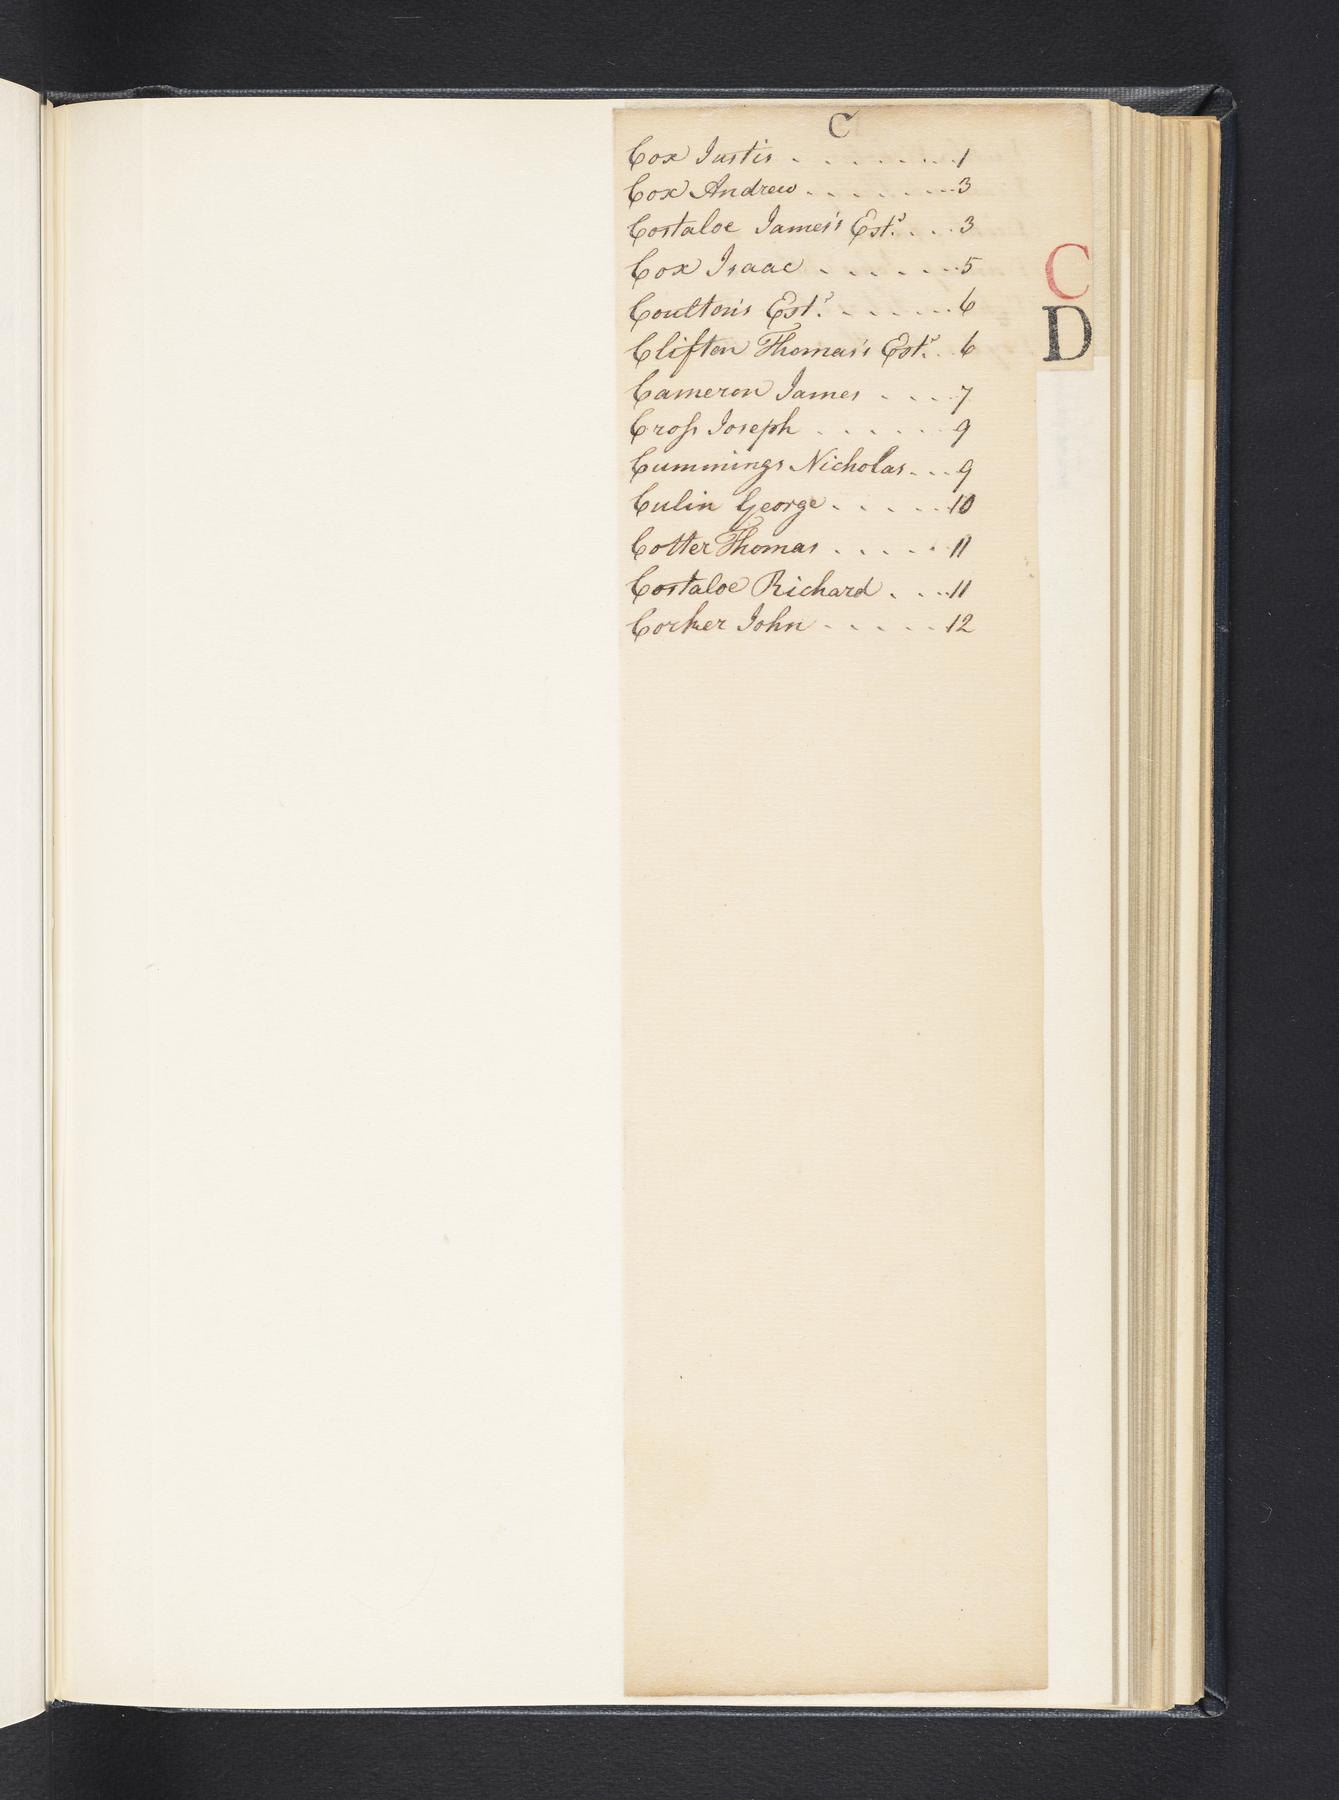 C
Cox Justis . . . . . . . . 1
Cox Andrew . . . . . . . . 3
Costaloe James's Est.ͬ . . . 3
Cox Isaac . . . . . . . 5
Coulton's Est.ͬ . . . . . . 6
Clifton Thomas's Est.ͬ . 6
Cameron James . . . . 7
Croſs Joseph . . . . . . 9
Cummings Nicholas . . . 9
Culin George . . . . . 10
Cotter Thomas . . . . . 11
Costaloe Richard . . . . 11
Corker John . . . . . 12
C
D